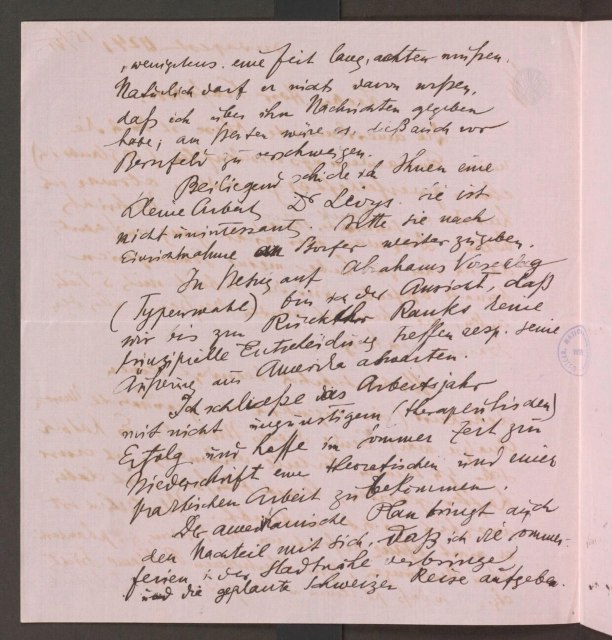 , wenigstens eine Zeit lang, achten müssen.
Natürlich darf er nichts davon wissen,
daß ich über ihn Nachrichten gegeben
habe; am besten wäre es, dieß auch vor
Bernfeld zu verschweigen.
Beiliegend schicke ich Ihnen eine
kleine Arbeit Dr Levys. Sie ist
nicht uninteressant. Bitte sie nach
Einsichtnahme an weiter zugeben.
In Bezug auf Abrahams Vorschlag
(Typenwahl) bin ich der Ansicht, daß
wir bis zur Rückkehr Ranks keine
prinzipielle Entscheidung treffen resp. seine
Äußerung aus Amerika abwarten.
Ich schließe das Arbeitsjahr
mit nicht ungünstigem (therapeutischen)
Erfolg und hoffe im Sommer Zeit zur
Niederschrift einer theoretischen und einer
praktischen Arbeit zu bekommen.
Der amerikanische Plan bringt auch
den Nachteil mit sich, daß ich die Sommer-
ferien in der Stadtnähe verbringe
und die geplante Schweizer Reise aufgebe.